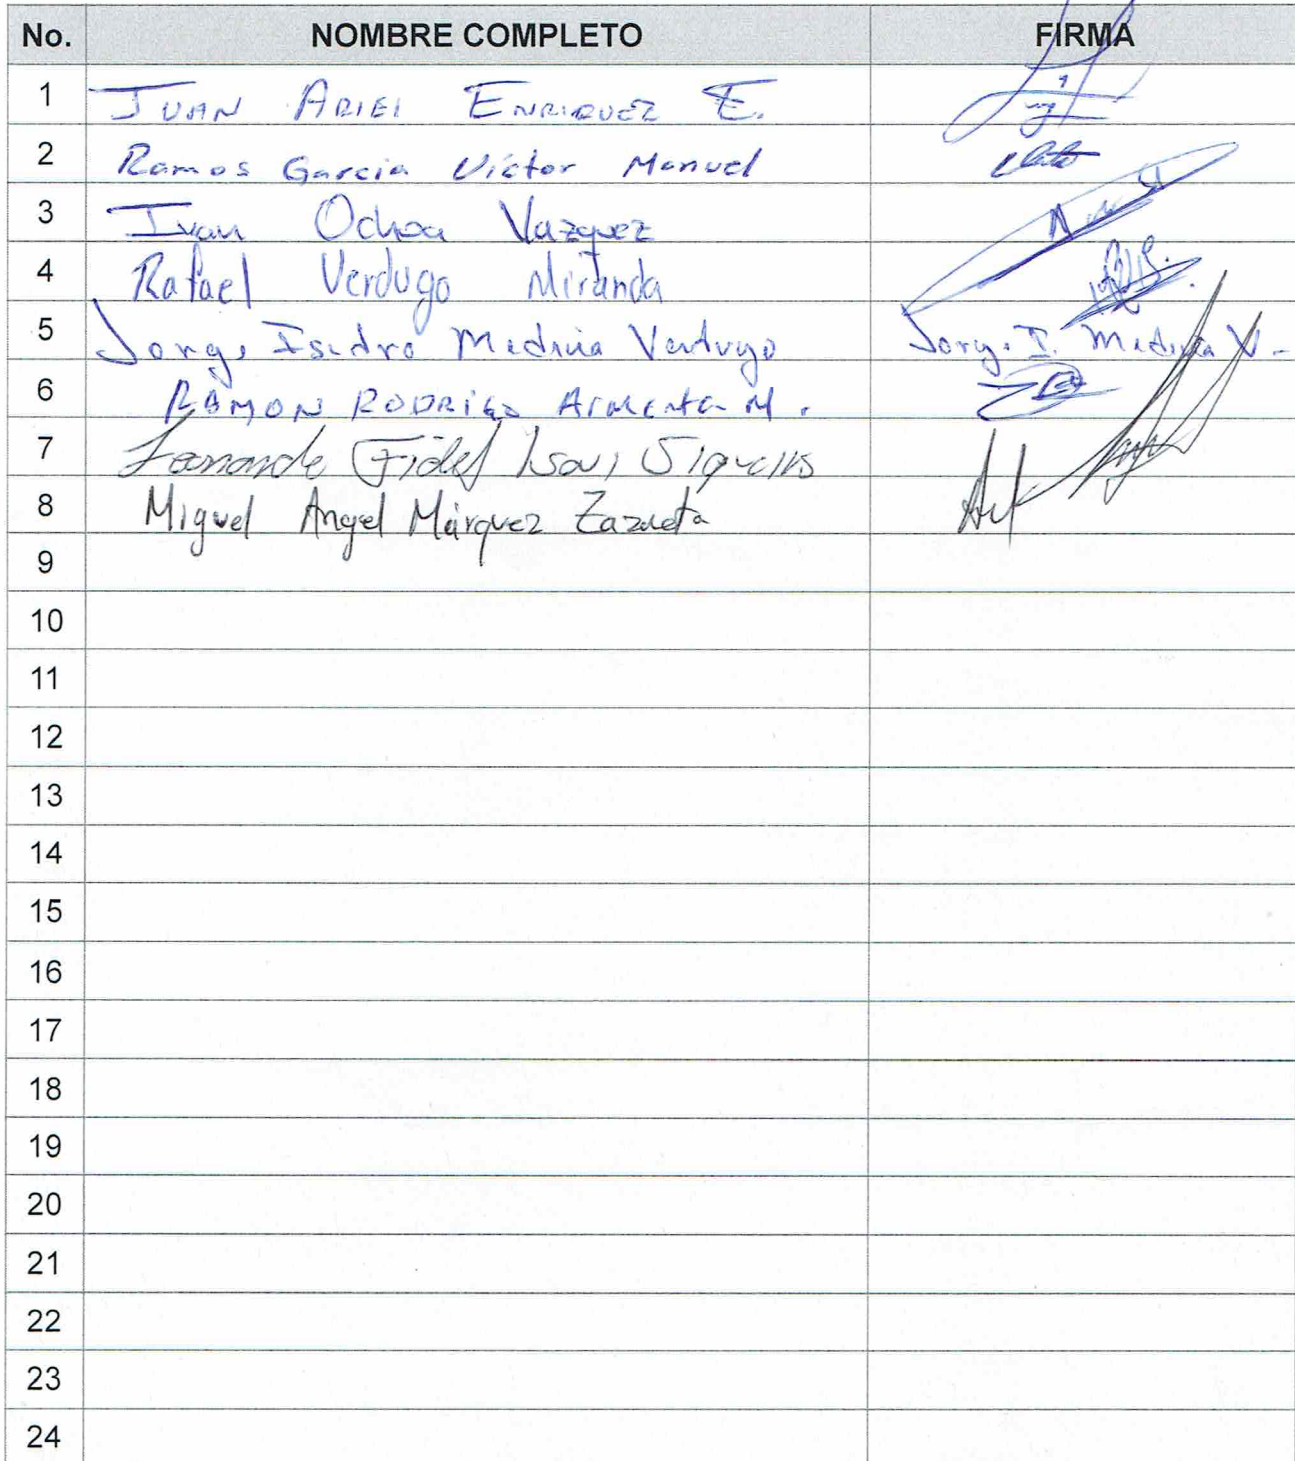 No. NOMBRE COMPLETO FIRMA
1 JUAN ARIEL ENRIQUEZ E.
2 Ramos Garcia Victor Manuel
3 Ivan Ochoa Vazquez
4 Rafael Verdugo Miranda
5 Jorge Isidro Medina Verdugo Jorge I. Medina V.
6 RAMON RODRIGO ARMENTA M.
7 Fernando Fidel Isai Siqueiros
8 Miguel Angel Márquez Zazueta
9
10
11
12
13
14
15
16
17
18
19
20
21
22
23
24